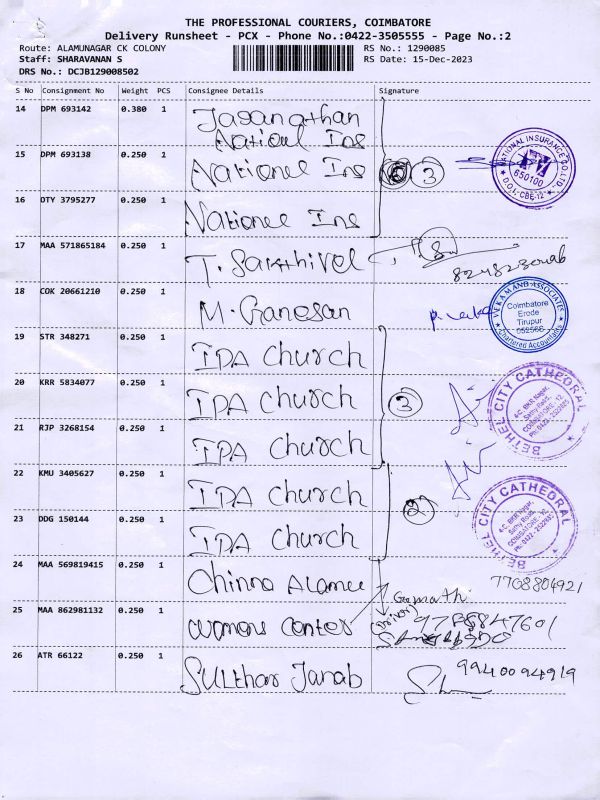 THE PROFESSIONAL COURIERS, COIMBATORE
Delivery Runsheet - PCX - Phone No.:0422-3505555 - Page No.:2
Route: ALAMUNAGAR CK COLONY RS No.: 1290085
Staff: SHARAVANAN S RS Date: 15-Dec-2023
DRS No.: DCJB129008502
S No Consignment No Weight PCS Consignee Details Signature
14 DPM 693142 0.380 1 Jasanathan
National Ins
15 DPM 693138 0.250 1 National Ins 3
NATIONAL INSURANCE CO. LTD.
650100
D.O.I. CBE-12
16 OTY 3795277 0.250 1 National Ins
17 MAA 571865184 0.250 1 T. Sakthivel
18 COK 20661210 0.250 1 M. Ganesan
VEKAMANB ASSOCIATES
Coimbatore
Erode
Tirupur
Chartered Accountants
19 STR 348271 0.250 1 IPA Church
20 KRR 5834077 0.250 1 IPA Church 3
BETHEL CITY CATHEDRAL
21 RJP 3268154 0.250 1 IPA Church
22 KMU 3405627 0.250 1 IPA Church 2
BETHEL CITY CATHEDRAL
23 DDG 150144 0.250 1 IPA Church
24 MAA 569819415 0.250 1 Chinna Alamee 7708804921
25 MAA 862981132 0.250 1 womens center Gomathi
9788847601
26 ATR 66122 0.250 1 Sulthar Janab 9940094919